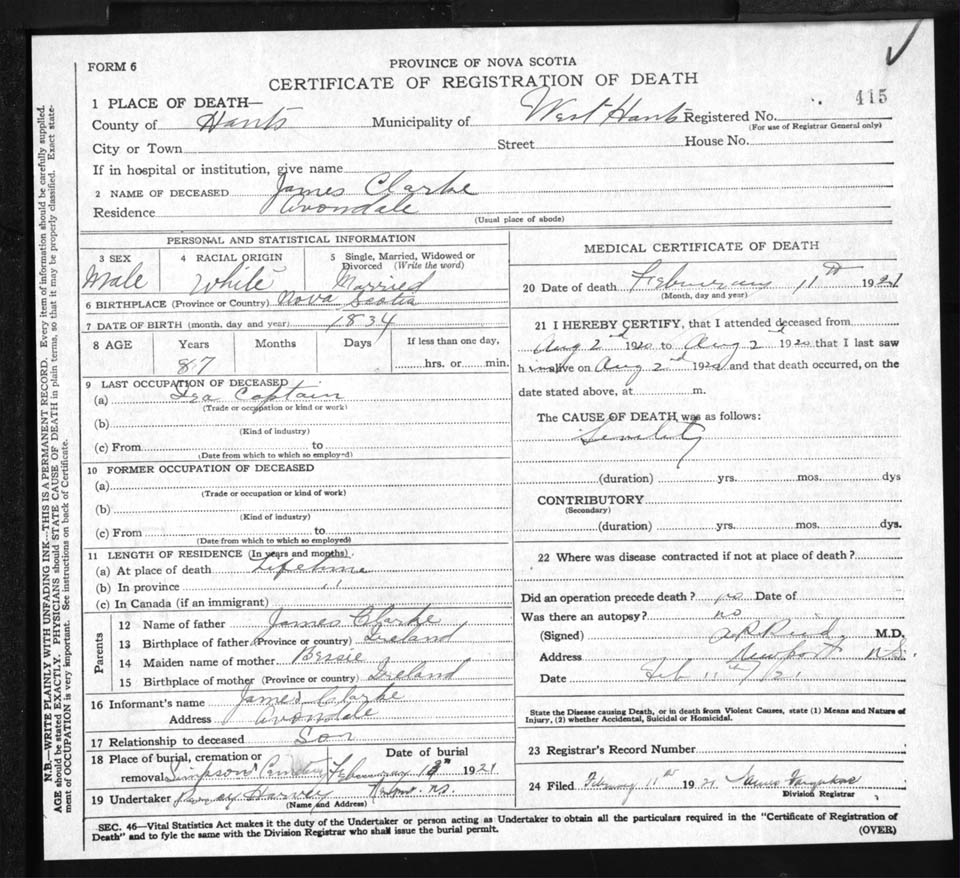 FORM 6
PROVINCE OF NOVA SCOTIA
CERTIFICATE OF REGISTRATION OF DEATH
415
1 PLACE OF DEATH—
County of Hants Municipality of West Hants Registered No.
(For use of Registrar General only)
City or Town Street House No.
If in hospital or institution, give name
2 NAME OF DECEASED James Clarke
Residence Avondale
(Usual place of abode)
PERSONAL AND STATISTICAL INFORMATION
3 SEX 4 RACIAL ORIGIN 5 Single, Married, Widowed or
Divorced (Write the word)
Male White Married
6 BIRTHPLACE (Province or Country) Nova Scotia
7 DATE OF BIRTH (month, day and year) 1834
8 AGE Years Months Days If less than one day,
87 hrs. or min.
9 LAST OCCUPATION OF DECEASED
(a) Sea Captain
(Trade or occupation or kind of work)
(b)
(Kind of industry)
(c) From to
(Date from which to which so employed)
10 FORMER OCCUPATION OF DECEASED
(a)
(Trade or occupation or kind of work)
(b)
(Kind of industry)
(c) From to
(Date from which to which so employed)
11 LENGTH OF RESIDENCE (In years and months)
(a) At place of death Lifetime
(b) In province "
(c) In Canada (if an immigrant)
Parents
12 Name of father James Clarke
13 Birthplace of father (Province or country) Ireland
14 Maiden name of mother Bessie
15 Birthplace of mother (Province or country) Ireland
16 Informant's name James Clarke
Address Avondale
17 Relationship to deceased Son
18 Place of burial, cremation or Date of burial
removal Simpson Cemetery February 13th 1921
19 Undertaker Harvey N.S.
(Name and Address)
MEDICAL CERTIFICATE OF DEATH
20 Date of death February 11th 1921
(Month, day and year)
21 I HEREBY CERTIFY, that I attended deceased from
Aug 2nd 1920 to Aug 2nd 1920 that I last saw
him alive on Aug 2nd 1920 and that death occurred, on the
date stated above, at m.
The CAUSE OF DEATH was as follows:
Senility
(duration) yrs. mos. dys
CONTRIBUTORY
(Secondary)
(duration) yrs. mos. dys.
22 Where was disease contracted if not at place of death?
Did an operation precede death? no Date of
Was there an autopsy? no
(Signed) Reid M.D.
Address Newport N.S.
Date Feb 11th / 21
State the Disease causing Death, or in death from Violent Causes, state (1) Means and Nature of
Injury, (2) whether Accidental, Suicidal or Homicidal.
23 Registrar's Record Number
24 Filed February 11th 1921 James
Division Registrar
SEC. 46—Vital Statistics Act makes it the duty of the Undertaker or person acting as Undertaker to obtain all the particulars required in the "Certificate of Registration of
Death" and to fyle the same with the Division Registrar who shall issue the burial permit. (OVER)
N.B.—WRITE PLAINLY WITH UNFADING INK—THIS IS A PERMANENT RECORD. Every item of information should be carefully supplied.
AGE should be stated EXACTLY. PHYSICIANS should STATE CAUSE OF DEATH in plain terms, so that it may be properly classified. Exact state-
ment of OCCUPATION is very important. See instructions on back of Certificate.